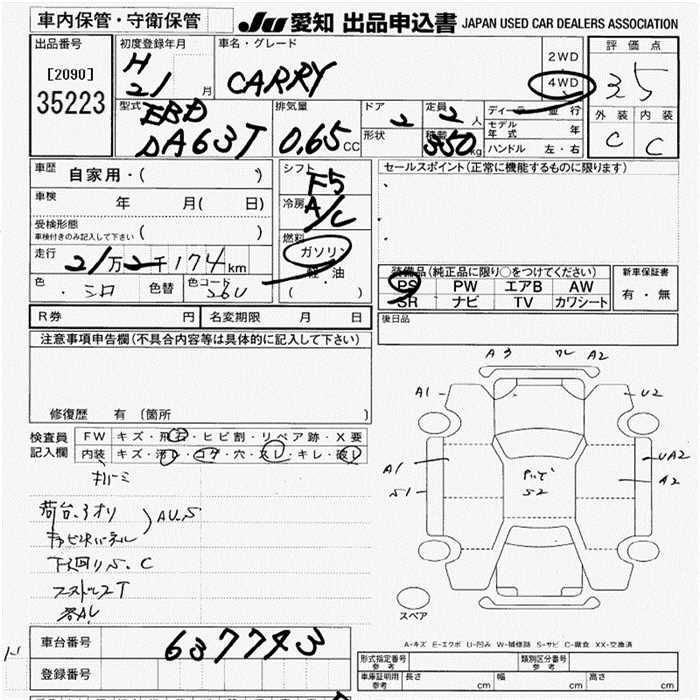 車内保管・守衛保管
JU 愛知 出品申込書 JAPAN USED CAR DEALERS ASSOCIATION
出品番号
[2090]
35223
初度登録年月
H
21 月
車名・グレード
CARRY
2WD
4WD
評価点
3.5
外装 内装
C C
型式
EBD
DA63T
排気量
0.65 CC
ドア
2
形状
定員
2 人
積載
350 kg
ディーラー 並行
モデル年式 年
ハンドル 左・右
車歴
自家用・( )
車検
年 月( 日)
受検形態
車検付きのみ記入して下さい ( )
走行
21万2千174km
色
シロ 色替
色コード
26U
シフト
F5
冷房
A/C
燃料
ガソリン
軽・油
( )
セールスポイント(正常に機能するものに限ります)
装備品(純正品に限り○をつけてください)
PS PW エアB AW
SR ナビ TV カワシート
新車保証書
有・無
後日品
R券 円 名変期限 月 日
注意事項申告欄(不具合内容等は具体的に記入して下さい)
修復歴 有 〔箇所 〕
検査員記入欄
FW キズ・飛石・ヒビ割・リペア跡・X要
内装 キズ・汚レ・コゲ・穴・スレ・キレ・破レ
荷台、3オリ
AU.S
下回りS、C
スタッドレスT
各A.U
A3 A2
A1 U2
A1 UA2
S1 A2
S2
スペア
A-キズ E-エクボ U-凹み W-補修跡 S-サビ C-腐食 XX-交換済
車台番号 637743
登録番号
形式指定番号 参考
類別区分番号 参考
車庫証明用 参考 長さ cm 幅 cm 高さ cm